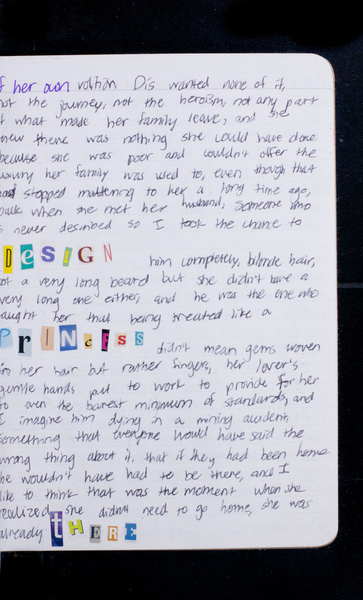 f her own volition Dis wanted none of it,
not the journey, not the heroism, not any part
f what made her family leave, and she
knew there was nothing she could have done
because she was poor and couldn't offer the
luxury her family was used to, even though that
had stopped mattering to her a long time ago,
back when she met her husband, someone who
s never described so I took the chance to
DESIGN him completely, blonde hair,
not a very long beard but she didn't have a
very long one either, and he was the one who
taught her that being treated like a
PRINCESS didn't mean gems woven
in her hair but rather fingers, her lover's
gentle hands put to work to provide for her
to even the barest minimum of standards, and
I imagine him dying in a mining accident,
something that everyone would have said the
wrong thing about it, that if they had been home
he wouldn't have had to be there, and I
like to think that was the moment when she
realized she didn't need to go home, she was
already tHERE